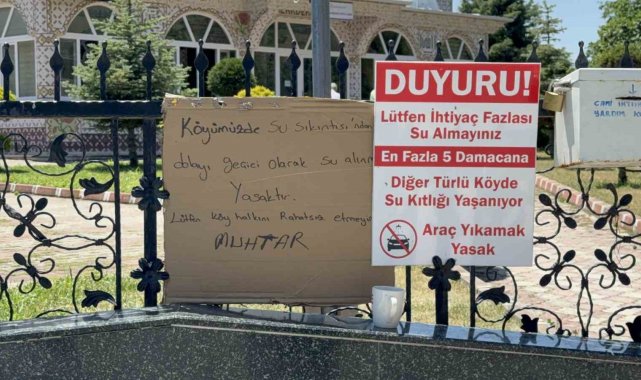 Köyümüzde su sıkıntısı'ndan
dolayı geçici olarak su alınm
Yasaktır.
Lütfen köy halkını Rahatsız etmeyin
MUHTAR
DUYURU!
Lütfen İhtiyaç Fazlası
Su Almayınız
En Fazla 5 Damacana
Diğer Türlü Köyde
Su Kıtlığı Yaşanıyor
Araç Yıkamak
Yasak
CAMİ İHTİY
YARDIM K